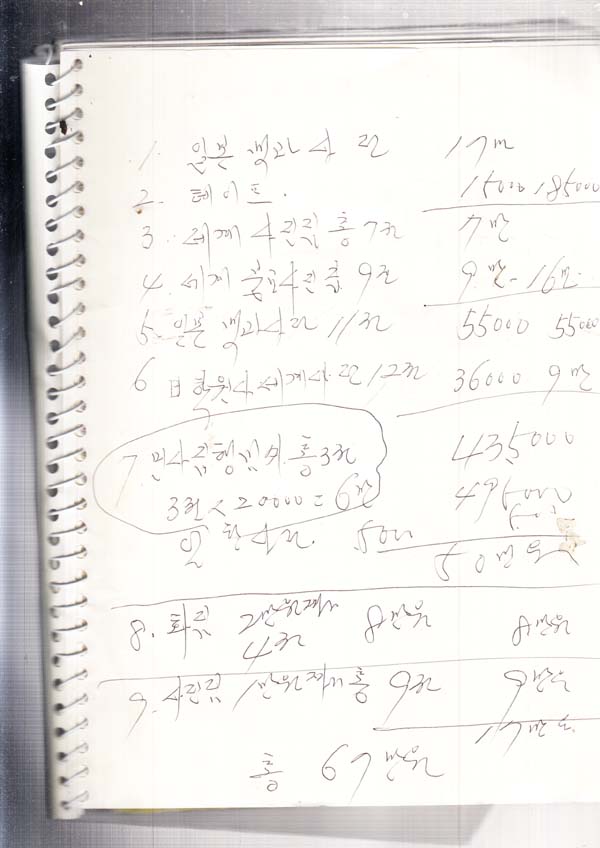 1. 일본 백과사전 17만
2. 테이프. 15000 185000
3. 세계 사진집 총 7권 7만
4. 세계 사진집 9권 9만 - 16만
5. 일본 백과사전 11권 55000 55000
6 日 세계사전 12권 36000 9만
435000
7. 민사집행실시 총 3권
3권 × 20000 = 6만 495000
일한사전. 5000
50만원
8. 화집 2만원짜리 8만원 8만원
4권
9. 사진집 1만원짜리 총 9권 9만원
17만원
총 67만원